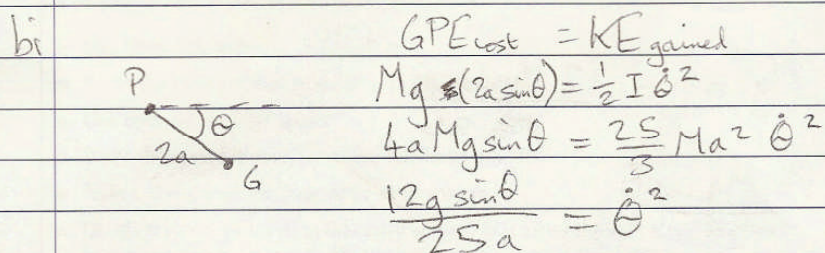 bi
GPE lost = KE gained
P
Mg (2a sinθ) = 1/2 I θ̇²
θ
4a Mg sinθ = 25/3 Ma² θ̇²
2a
G
12g sinθ / 25a = θ̇²